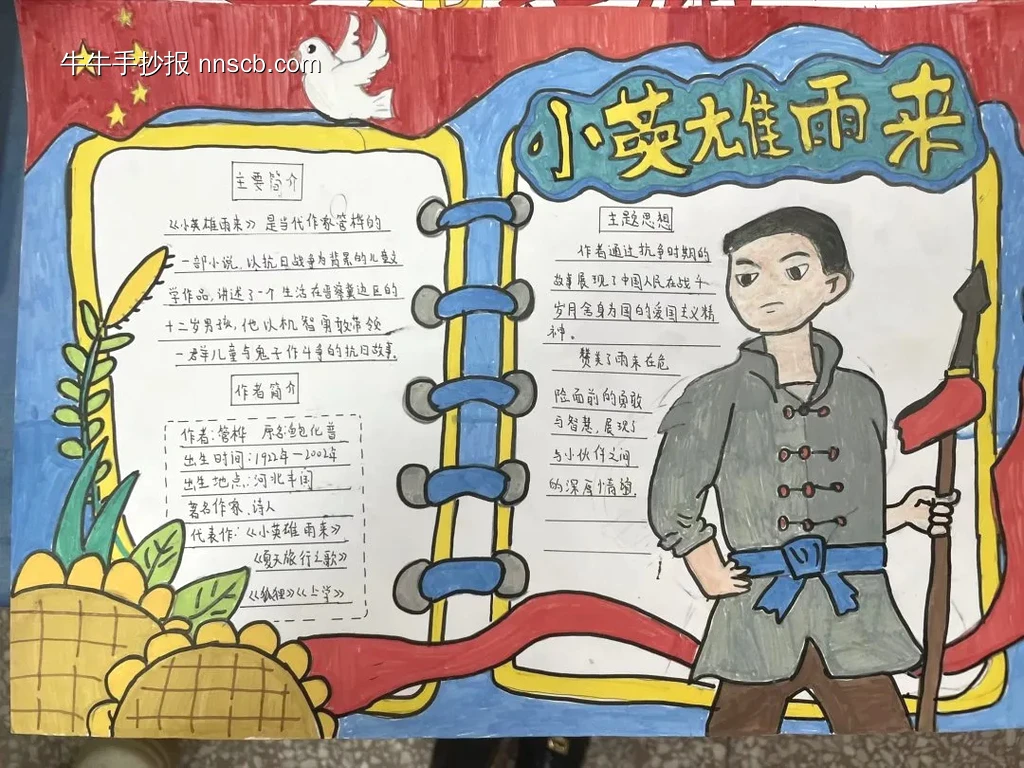 牛牛手抄报 nnscb.com
小英雄雨来
主要简介
《小英雄雨来》是当代作家管桦的
一部小说,以抗日战争为背景的儿童文
学作品,讲述了一个生活在晋察冀边区的
十二岁男孩,他以机智勇敢带领
一群儿童与鬼子作斗争的抗日故事.
作者简介
作者:管桦 原名:鲍化普
出生时间:1922年-2002年
出生地点:河北丰润
著名作家、诗人
代表作:《小英雄雨来》
《夏天旅行之歌》
《狐狸》《上学》
主题思想
作者通过抗争时期的
故事展现了中国人民在战斗
岁月舍身为国的爱国主义精
神。
赞美了雨来在危
险面前的勇敢
与智慧,展现了
与小伙伴之间
的深厚情谊.